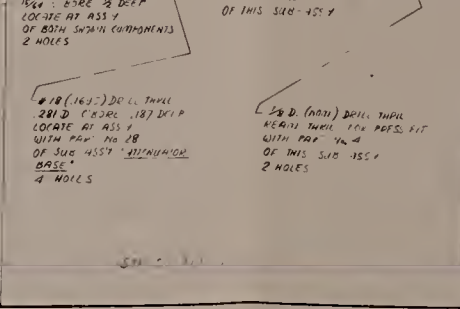 DEEP
LOCATE AT ASS'Y
OF BOTH COMPONENTS
2 HOLES
OF THIS SUB-ASS'Y
#18 DRILL THRU
.281 D C'BORE .187 DEEP
LOCATE AT ASS'Y
WITH PART No 28
OF SUB ASS'Y "ATTENUATOR
BASE"
4 HOLES
1/8 D. (NOM) DRILL THRU
REAM THRU FOR PRESS FIT
WITH PART No 4
OF THIS SUB ASS'Y
2 HOLES